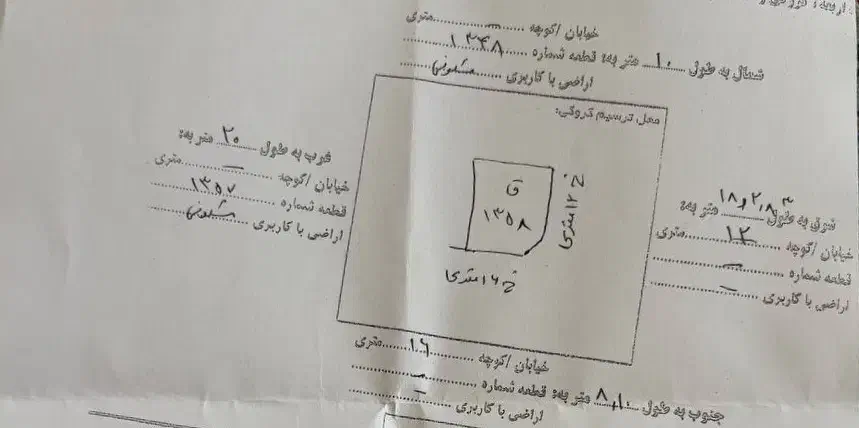 اربعه:
خیابان / کوچه ..... — ..... متری
شمال به طول ..... ۱۰ ..... متر به: قطعه شماره ..... ۱۳۴۸ .....
اراضی با کاربری ..... مسکونی .....
محل ترسیم کروکی:
ق
۱۳۵۸
خ ۱۲ متری
خ ۱۶ متری
شرق به طول ..... متر به:
خیابان / کوچه ..... ۱۲ ..... متری
قطعه شماره ..... — .....
اراضی با کاربری ..... — .....
غرب به طول ..... ۲۰ ..... متر به:
خیابان / کوچه ..... — ..... متری
قطعه شماره ..... ۱۳۵۷ .....
اراضی با کاربری ..... مسکونی .....
خیابان / کوچه ..... ۱۶ ..... متری
جنوب به طول ..... متر به: قطعه شماره ..... — .....
اراضی با کاربری ..... — .....